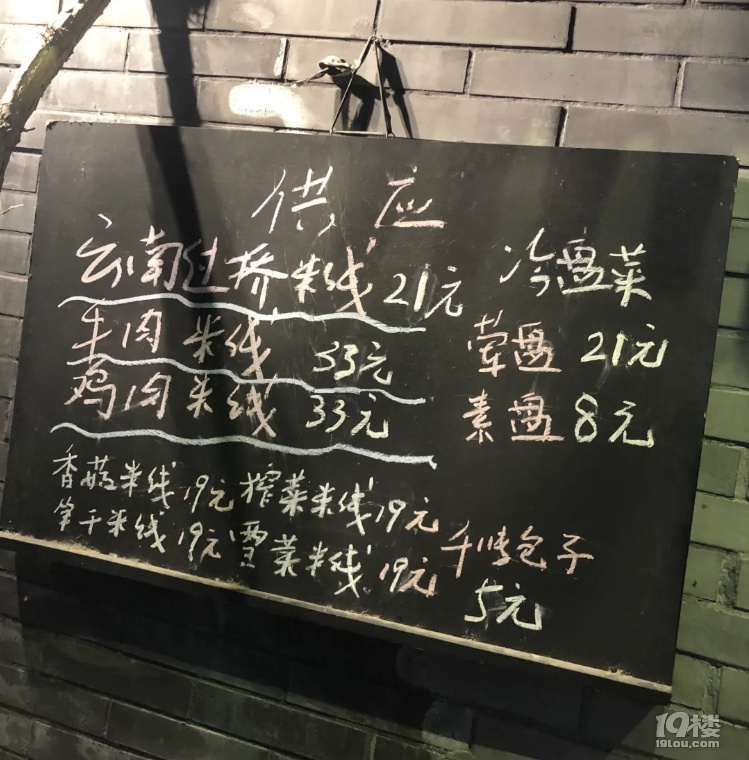 供应
云南过桥米线 21元
牛肉米线 33元
鸡肉米线 33元
香菇米线 19元 榨菜米线 19元
笋干米线 19元 雪菜米线 19元
冷盘菜
荤盘 21元
素盘 8元
干烤包子
5元
19楼
19Lou.com